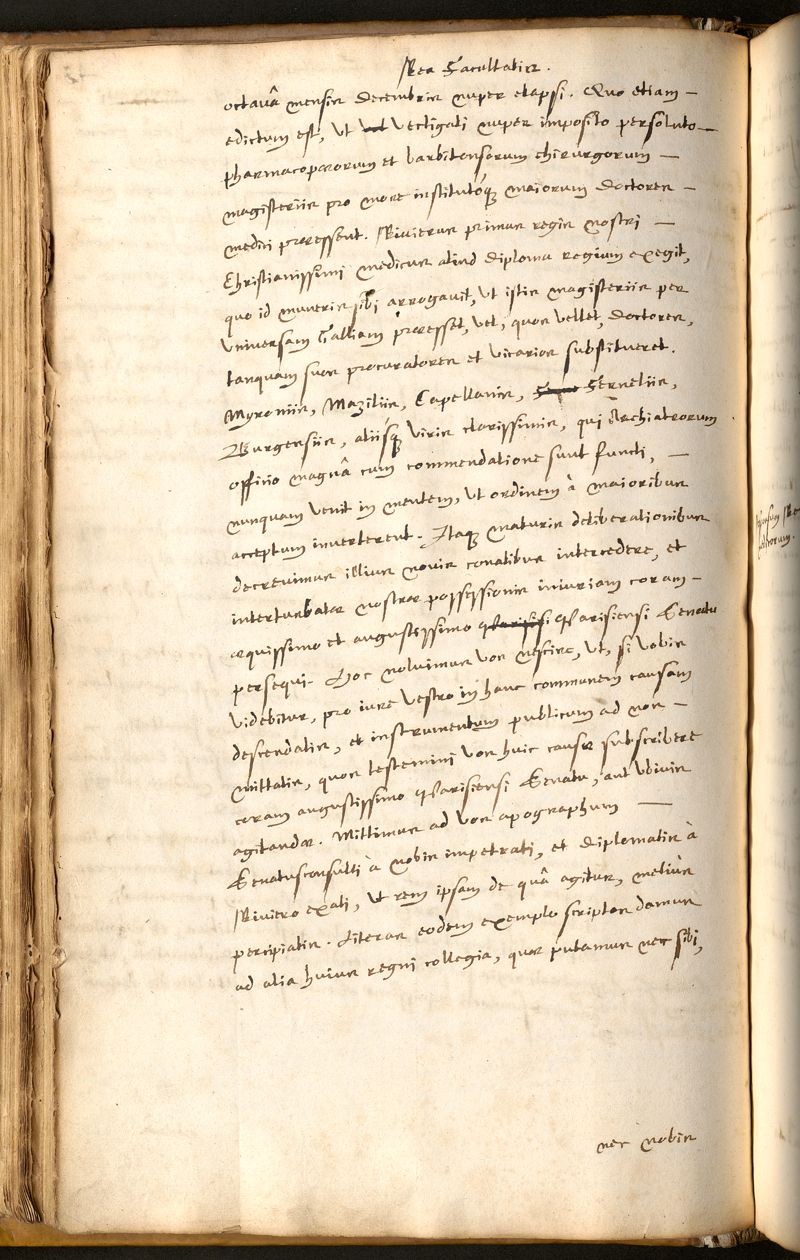 Res Facultatis.
octauâ mensis Decembris nuper elapsi. Quo etiam —
edictum est, ut vectigali nuper imposito persoluto —
pharmacopoeorum et barbitonsorum chirurgorum —
magisteriis pro more institutóq; maiorum doctores —
medici praeessent. Riuierus primus regis nostri —
Christianissimi medicus aliud diploma regium exegit,
quo id muneris sibi arrogauit, ut istis magisteriis per
Vniuersam Galliam praeesset, vel, quos vellet, doctores,
tanquam suos procuratores et vicarios substitueret.
Myroniis, Maziliis, Capellanis, Ferneliis,
Burgensiis, aliísq; viris clarissimis, qui Archiatrorum
officio magnâ cum commendatione sunt functi, —
nunquam venit in mentem, ut ordinem à maioribus
acceptum inuerterent. Itaq; maturis deliberationibus
decreuimus illius nouis conatibus intercedere, et
interturbatae nostrae possessionis iniuriam coram —
aequissimo et augustissimo Parisiensi Senatu
persequi. Hoc noluimus vos nescire, ut, si vobis
videbitur, pro iure vestro in hanc communem causam
descendatis, et instrumentum publicum ad nos —
mittatis, quo testemini vos huic causae subscribere
coram augustissimo Parisiensi Senatu, aut vbiuis
agitandae. Mittimus ad vos apographum —
Senatusconsulti à nobis impetrati, et diplomatis à
Riuiero exati, ut rem ipsam de quâ agitur, meliùs
percipiatis. Literas eodem exemplo scriptas damus
ad alia huius regni collegia, quae putamus nec sibi,
nec nobis